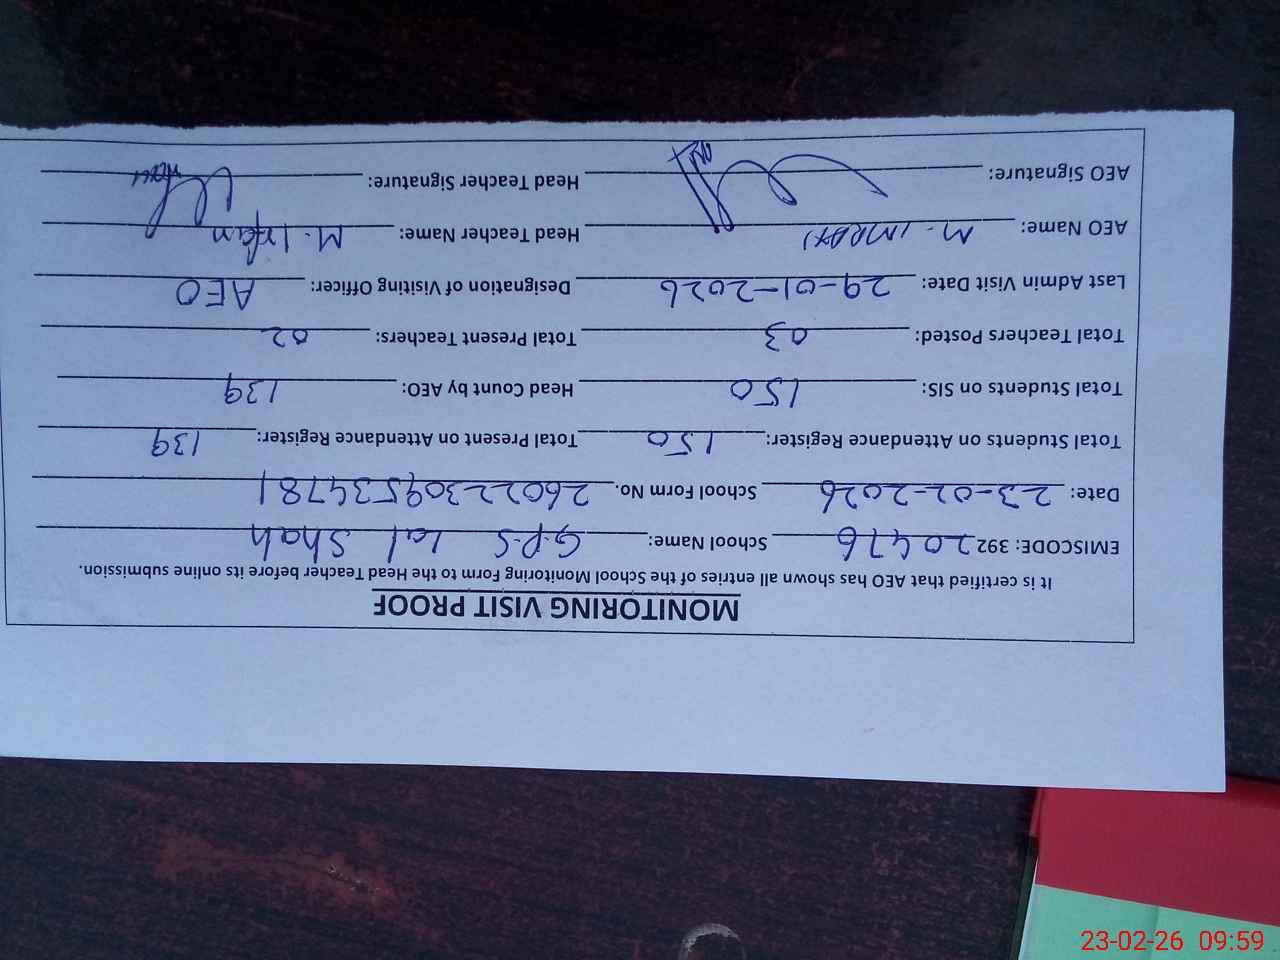 MONITORING VISIT PROOF
It is certified that AEO has shown all entries of the School Monitoring Form to the Head Teacher before its online submission.
EMISCODE: 39220476 School Name: G.P.S Lal Shah
Date: 23-02-2026 School Form No. 26022309534781
Total Students on Attendance Register: 150 Total Present on Attendance Register: 139
Total Students on SIS: 150 Head Count by AEO: 139
Total Teachers Posted: 03 Total Present Teachers: 02
Last Admin Visit Date: 29-01-2026 Designation of Visiting Officer: AEO
AEO Name: M. IMRAN Head Teacher Name: M. Irfan
AEO Signature: Head Teacher Signature:
23-02-26 09:59